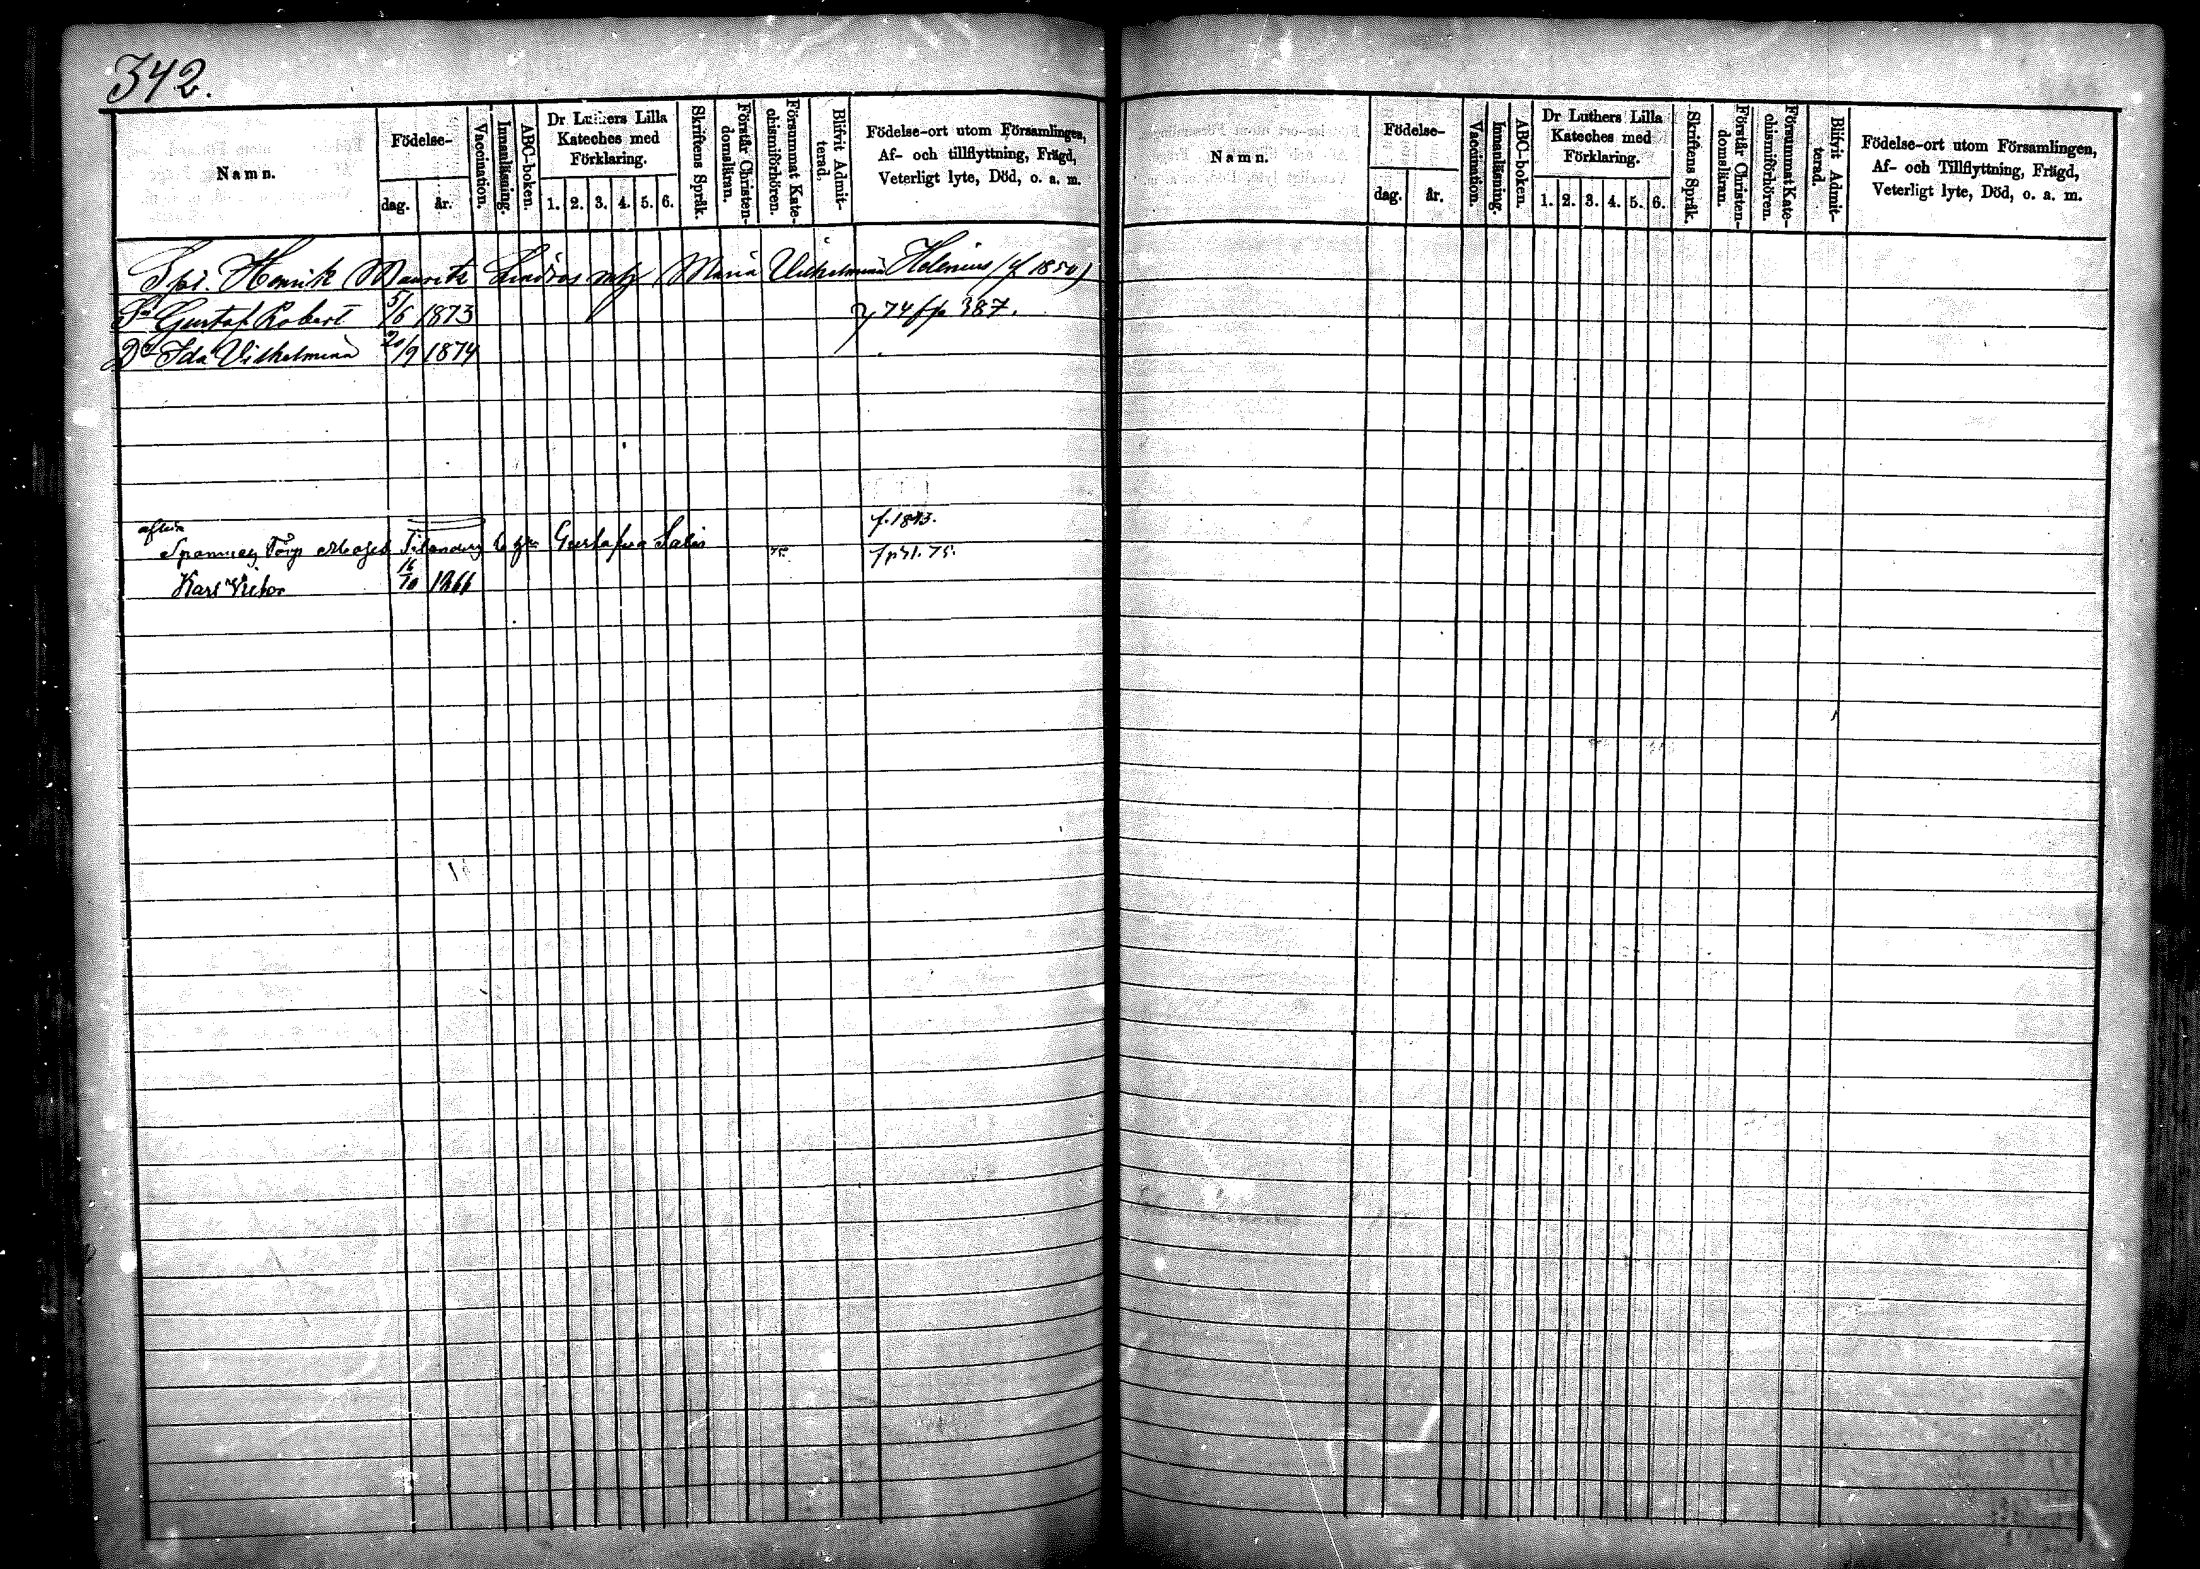 342.
Namn.
Födelse-
dag.
år.
Vaccination.
Innanläsning.
ABC-boken.
Dr Luthers Lilla
Kateches med
Förklaring.
1. 2. 3. 4. 5. 6.
Skriftens Språk.
Förstår Christen-
domsläran.
Försummat Kate-
chismiförhören.
Blifvit Admit-
terad.
Födelse-ort utom Församlingen,
Af- och tillflyttning, Frägd,
Veterligt lyte, Död, o. a. m.
Henrik Mauritz Lindros Maria Vilhelmina Helenius (f 1850)
Gustaf Robert 5/6 1873 74 387.
Ida Vilhelmina 20/9 1874
f. 1843.
Gustafva 75.
Karl Victor 16/10 1866
Namn.
Födelse-
dag.
år.
Vaccination.
Innanläsning.
ABC-boken.
Dr Luthers Lilla
Kateches med
Förklaring.
1. 2. 3. 4. 5. 6.
Skriftens Språk.
Förstår Christen-
domsläran.
Försummat Kate-
chismiförhören.
Blifvit Admit-
terad.
Födelse-ort utom Församlingen,
Af- och Tillflyttning, Frägd,
Veterligt lyte, Död, o. a. m.